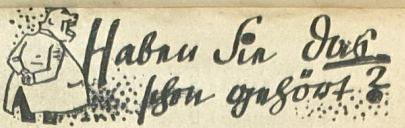 Haben Sie das
schon gehört?